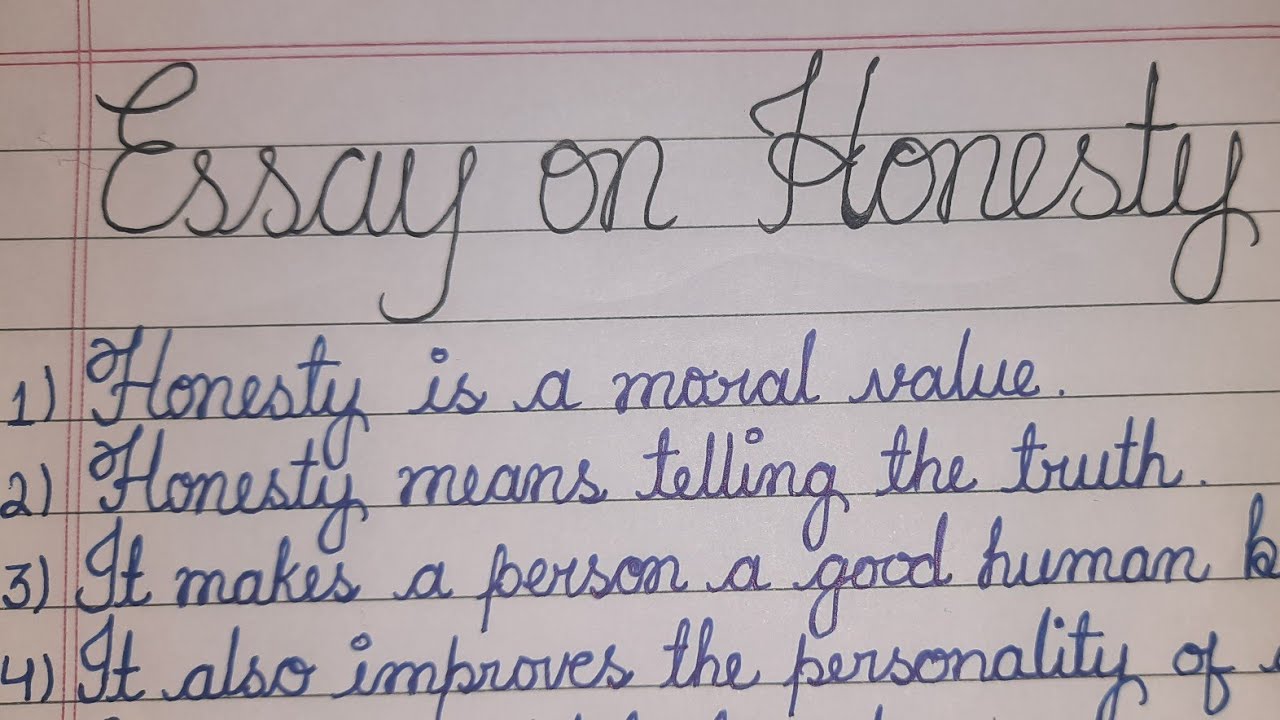 Essay on Honesty
1) Honesty is a moral value.
2) Honesty means telling the truth.
3) It makes a person a good human
4) It also improves the personality of